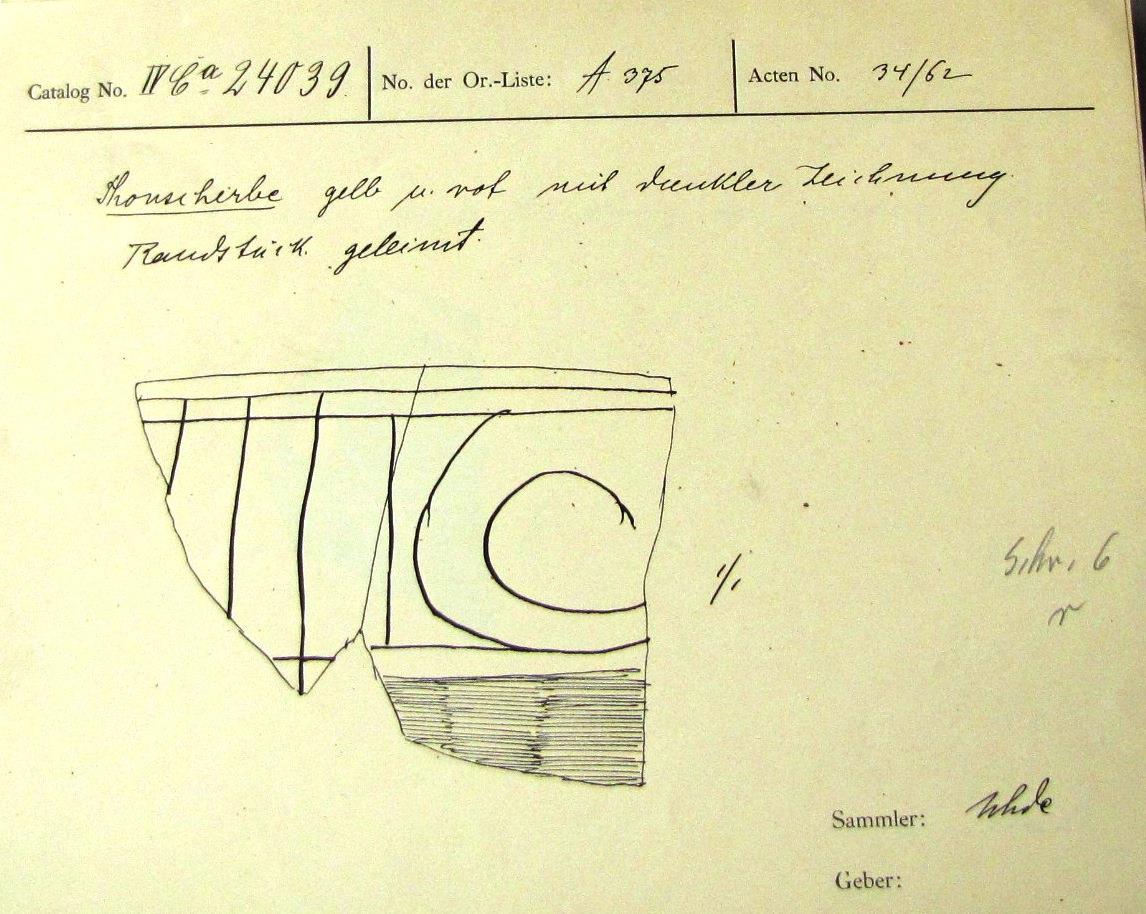 Catalog No. IV Ca 24039 No. der Or.-Liste: A 375 Acten No. 34/62
Thonscherbe gelb u. rot mit dunkler Zeichnung.
Randstück geleimt.
1/1
Schr. 6
r
Sammler: Uhde
Geber: